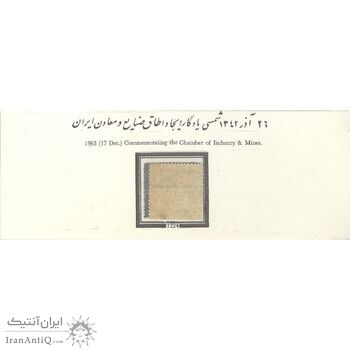 ۲۶ آذر ۱۳۴۲ شمسی یادگار ایجاد اطاق صنایع و معادن ایران
1963 (17 Dec.) Commemorating the Chamber of Industry & Mines.
ایران آنتیک
IranAntiQ.com